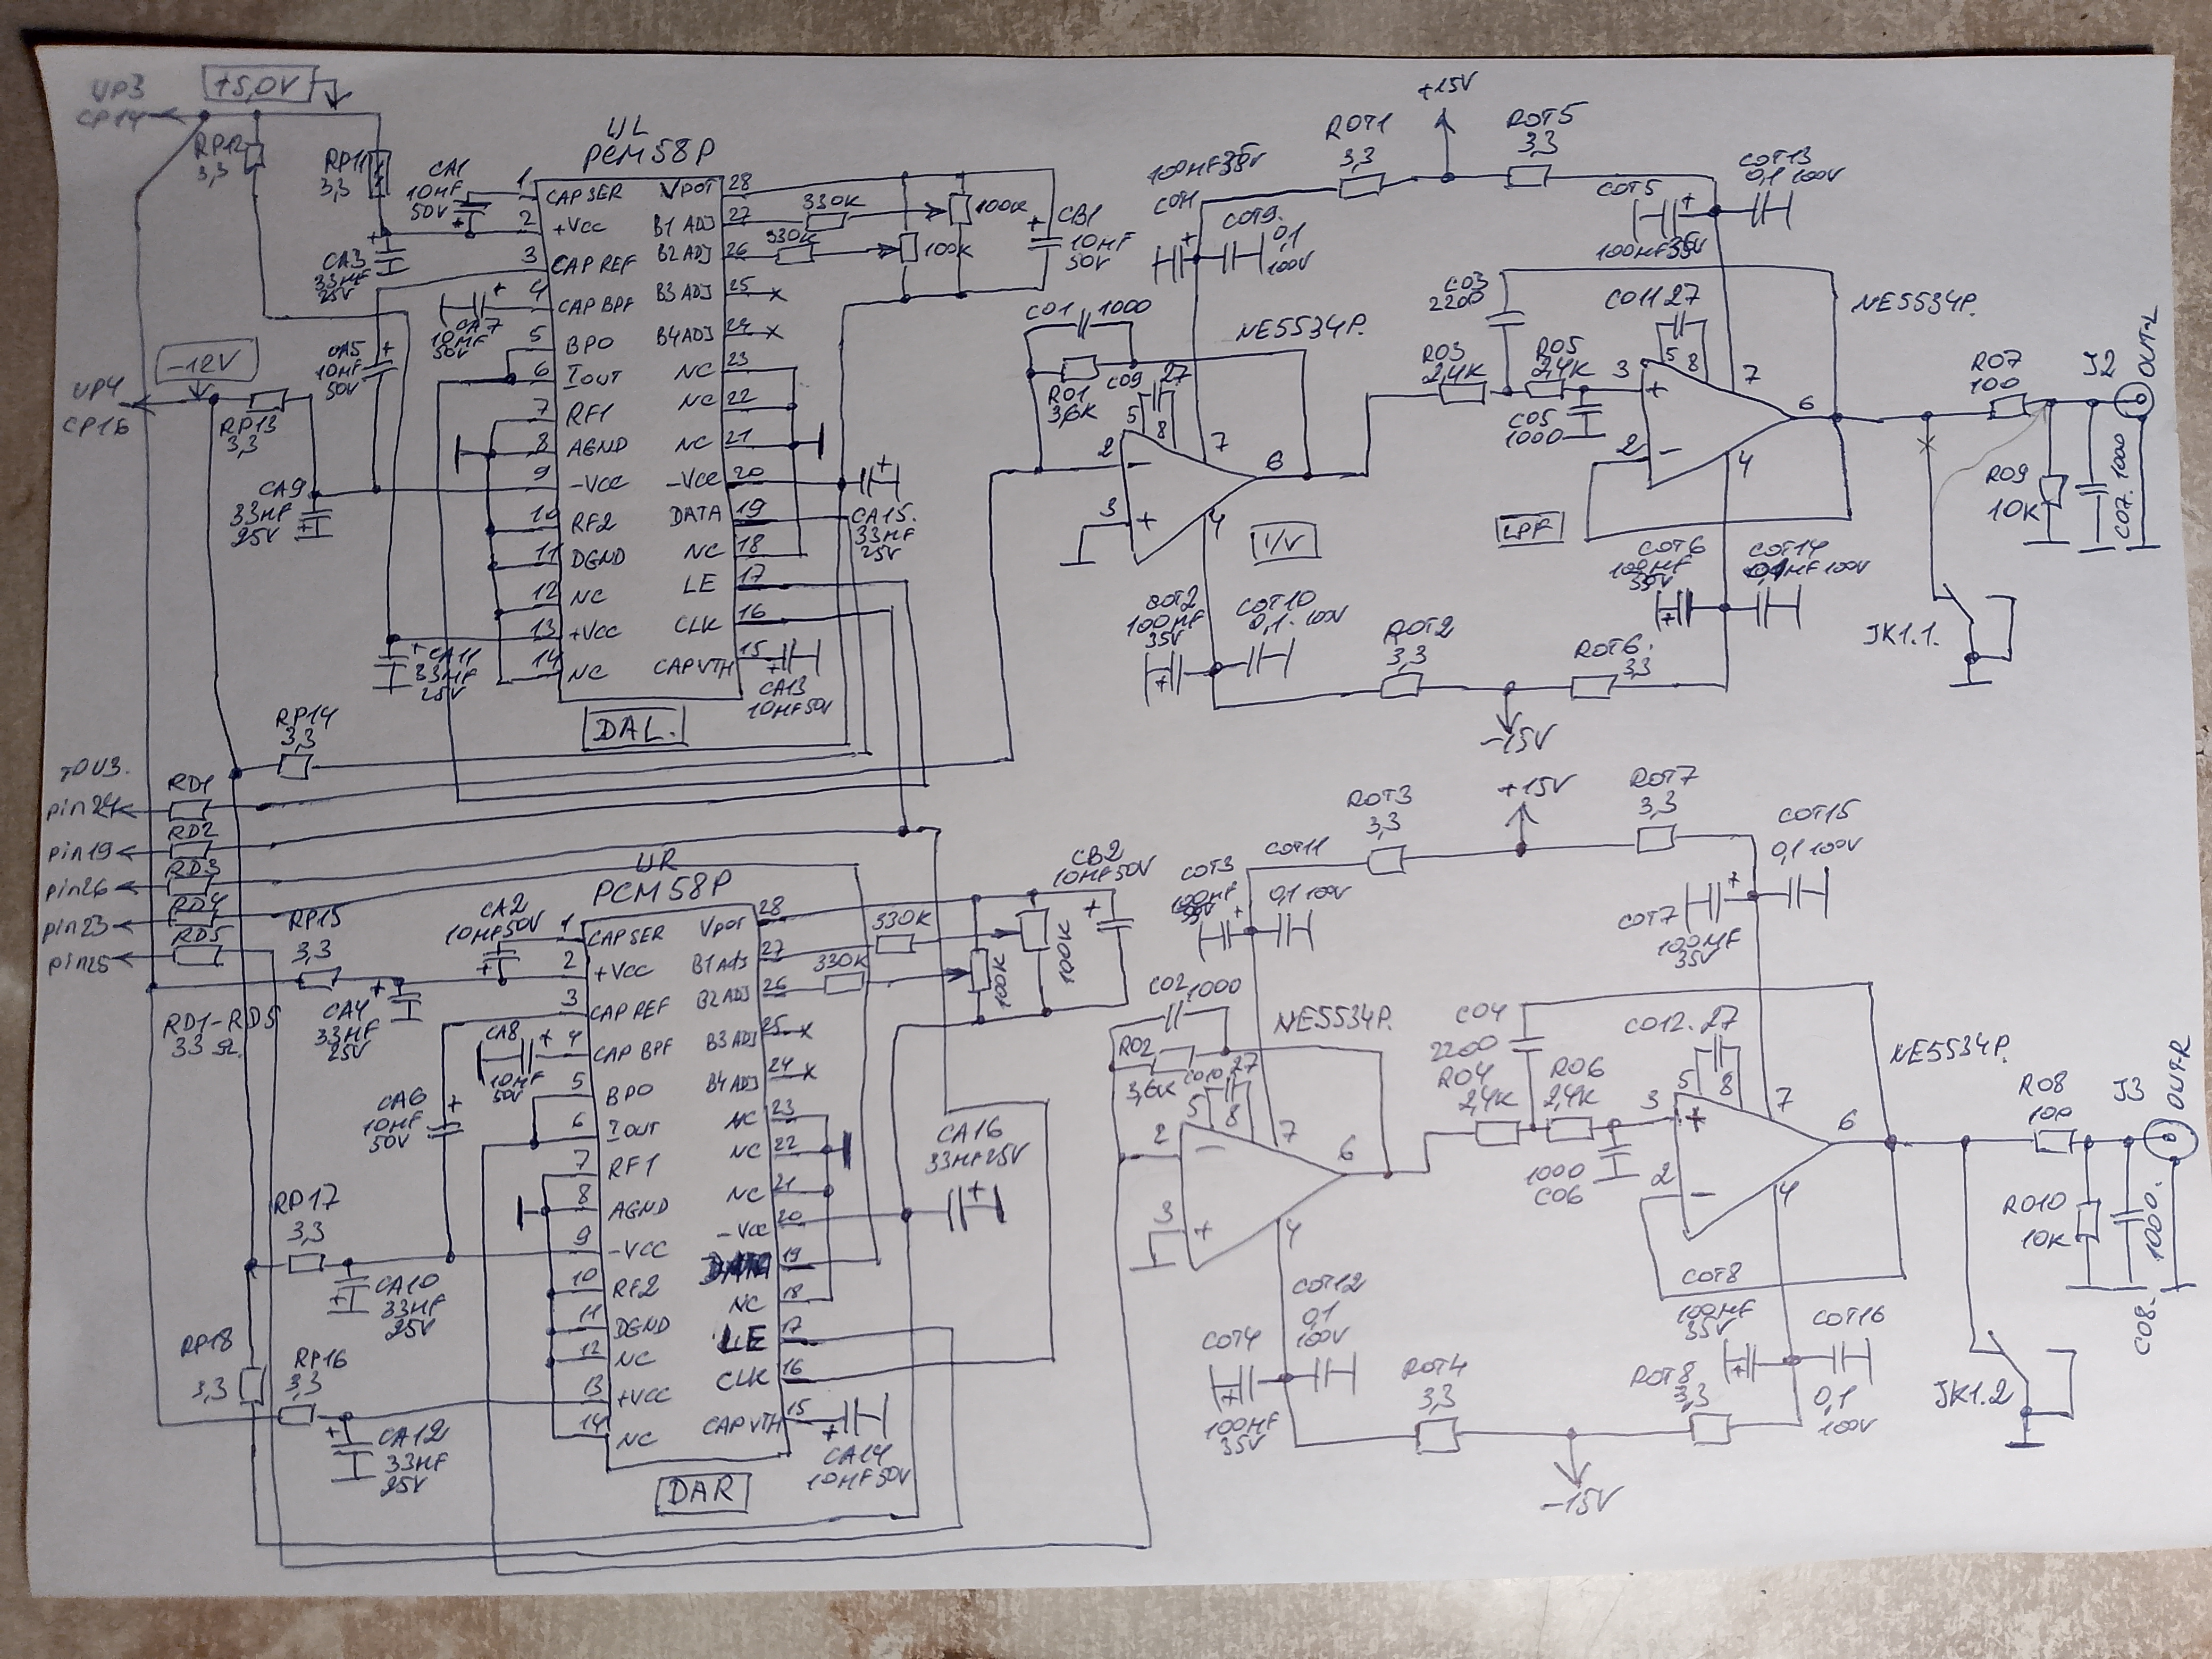 VP3
CP14
+5,0V
RP12
3,3
RP11
3,3
CA1
10MF
50V
UL
PCM58P
1 CAP SER
2 +Vcc
3 CAP REF
4 CAP BPF
5 BPO
6 IOUT
7 RF1
8 AGND
9 -VCC
10 RF2
11 DGND
12 NC
13 +VCC
14 NC
VPOT 28
B1 ADJ 27
B2 ADJ 26
B3 ADJ 25
B4 ADJ 24
NC 23
NC 22
NC 21
-VCC 20
DATA 19
NC 18
LE 17
CLK 16
CAP VTH 15
330K
330K
100K
100K
CB1
10MF
50V
CA3
33MF
25V
CA7
10MF
50V
CA5
10MF
50V
-12V
VP4
CP16
RP13
3,3
CA9
33MF
25V
CA11
33MF
25V
CA15.
33MF
25V
CA13
10MF 50V
DAL.
RP14
3,3
100MF 35V
COT9.
0,1
100V
ROT1
3,3
+15V
ROT5
3,3
COT5
100MF 35V
COT13
0,1 100V
CO1 1000
RO1
3,6K
CO9 27
5
8
NE5534P.
2 -
3 +
7
6
4
I/V
CO3
2200
RO3
2,4K
RO5
2,4K
CO5
1000
CO11 27
5
8
NE5534P.
3 +
2 -
7
6
4
LPF
RO7
100
J2
OUT-L
RO9
10K
CO7. 1000
JK1.1.
COT2
100MF
35V
COT10
0,1. 100V
ROT2
3,3
-15V
ROT6.
3,3
COT6
100MF
35V
COT14
0,1MF 100V
TO U3.
pin24
RD1
pin19
RD2
pin26
RD3
pin23
RD4
pin25
RD5
RD1-RD5
33 Ω
RP15
3,3
CA4
33MF
25V
CA2
10MF 50V
UR
PCM58P
1 CAP SER
2 +VCC
3 CAP REF
4 CAP BPF
5 BPO
6 IOUT
7 RF1
8 AGND
9 -VCC
10 RF2
11 DGND
12 NC
13 +VCC
14 NC
VPOT 28
B1 ADJ 27
B2 ADJ 26
B3 ADJ 25
B4 ADJ 24
NC 23
NC 22
NC 21
-VCC 20
DATA 19
NC 18
LE 17
CLK 16
CAP VTH 15
330K
330K
100K
100K
CB2
10MF 50V
CA8
10MF
50V
CA6
10MF
50V
CA16
33MF 25V
RP17
3,3
CA10
33MF
25V
RP18
3,3
RP16
3,3
CA12
33MF
25V
CA14
10MF 50V
DAR
COT3
100MF
35V
COT11
0,1 100V
ROT3
3,3
+15V
ROT7
3,3
COT7
100MF
35V
COT15
0,1 100V
CO2 1000
RO2
3,6K
CO10 27
5
8
NE5534P.
2 -
3 +
7
6
4
CO4
2200
RO4
2,4K
RO6
2,4K
1000
CO6
CO12. 27
5
8
NE5534P.
3 +
2 -
7
6
4
RO8
100
J3
OUT-R
RO10
10K
CO8- 1000.
JK1.2
COT4
100MF
35V
COT12
0,1
100V
ROT4
3,3
-15V
ROT8
3,3
COT8
100MF
35V
COT16
0,1
100V